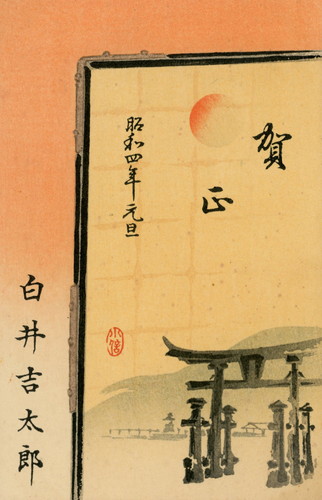 賀正
昭和四年元旦
白井吉太郎